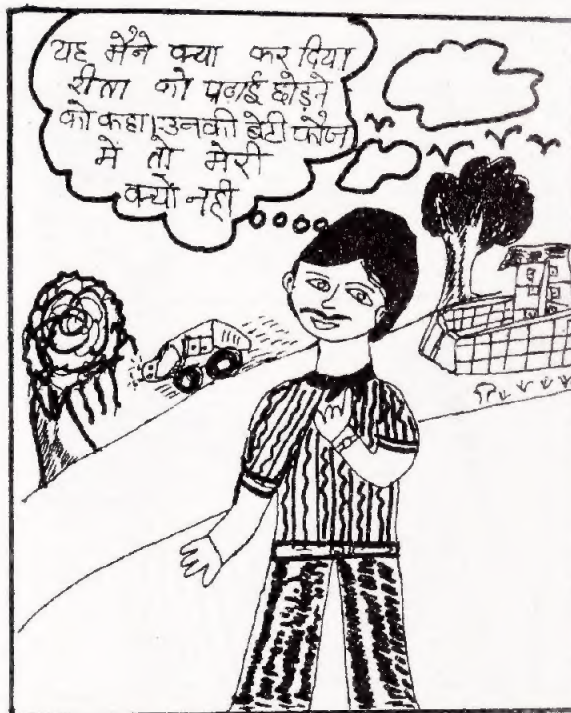 यह मैने क्या कर दिया
रीता को पढ़ाई छोड़ने
को कहा। उनकी बेटी फौज
में तो मेरी
क्यों नही